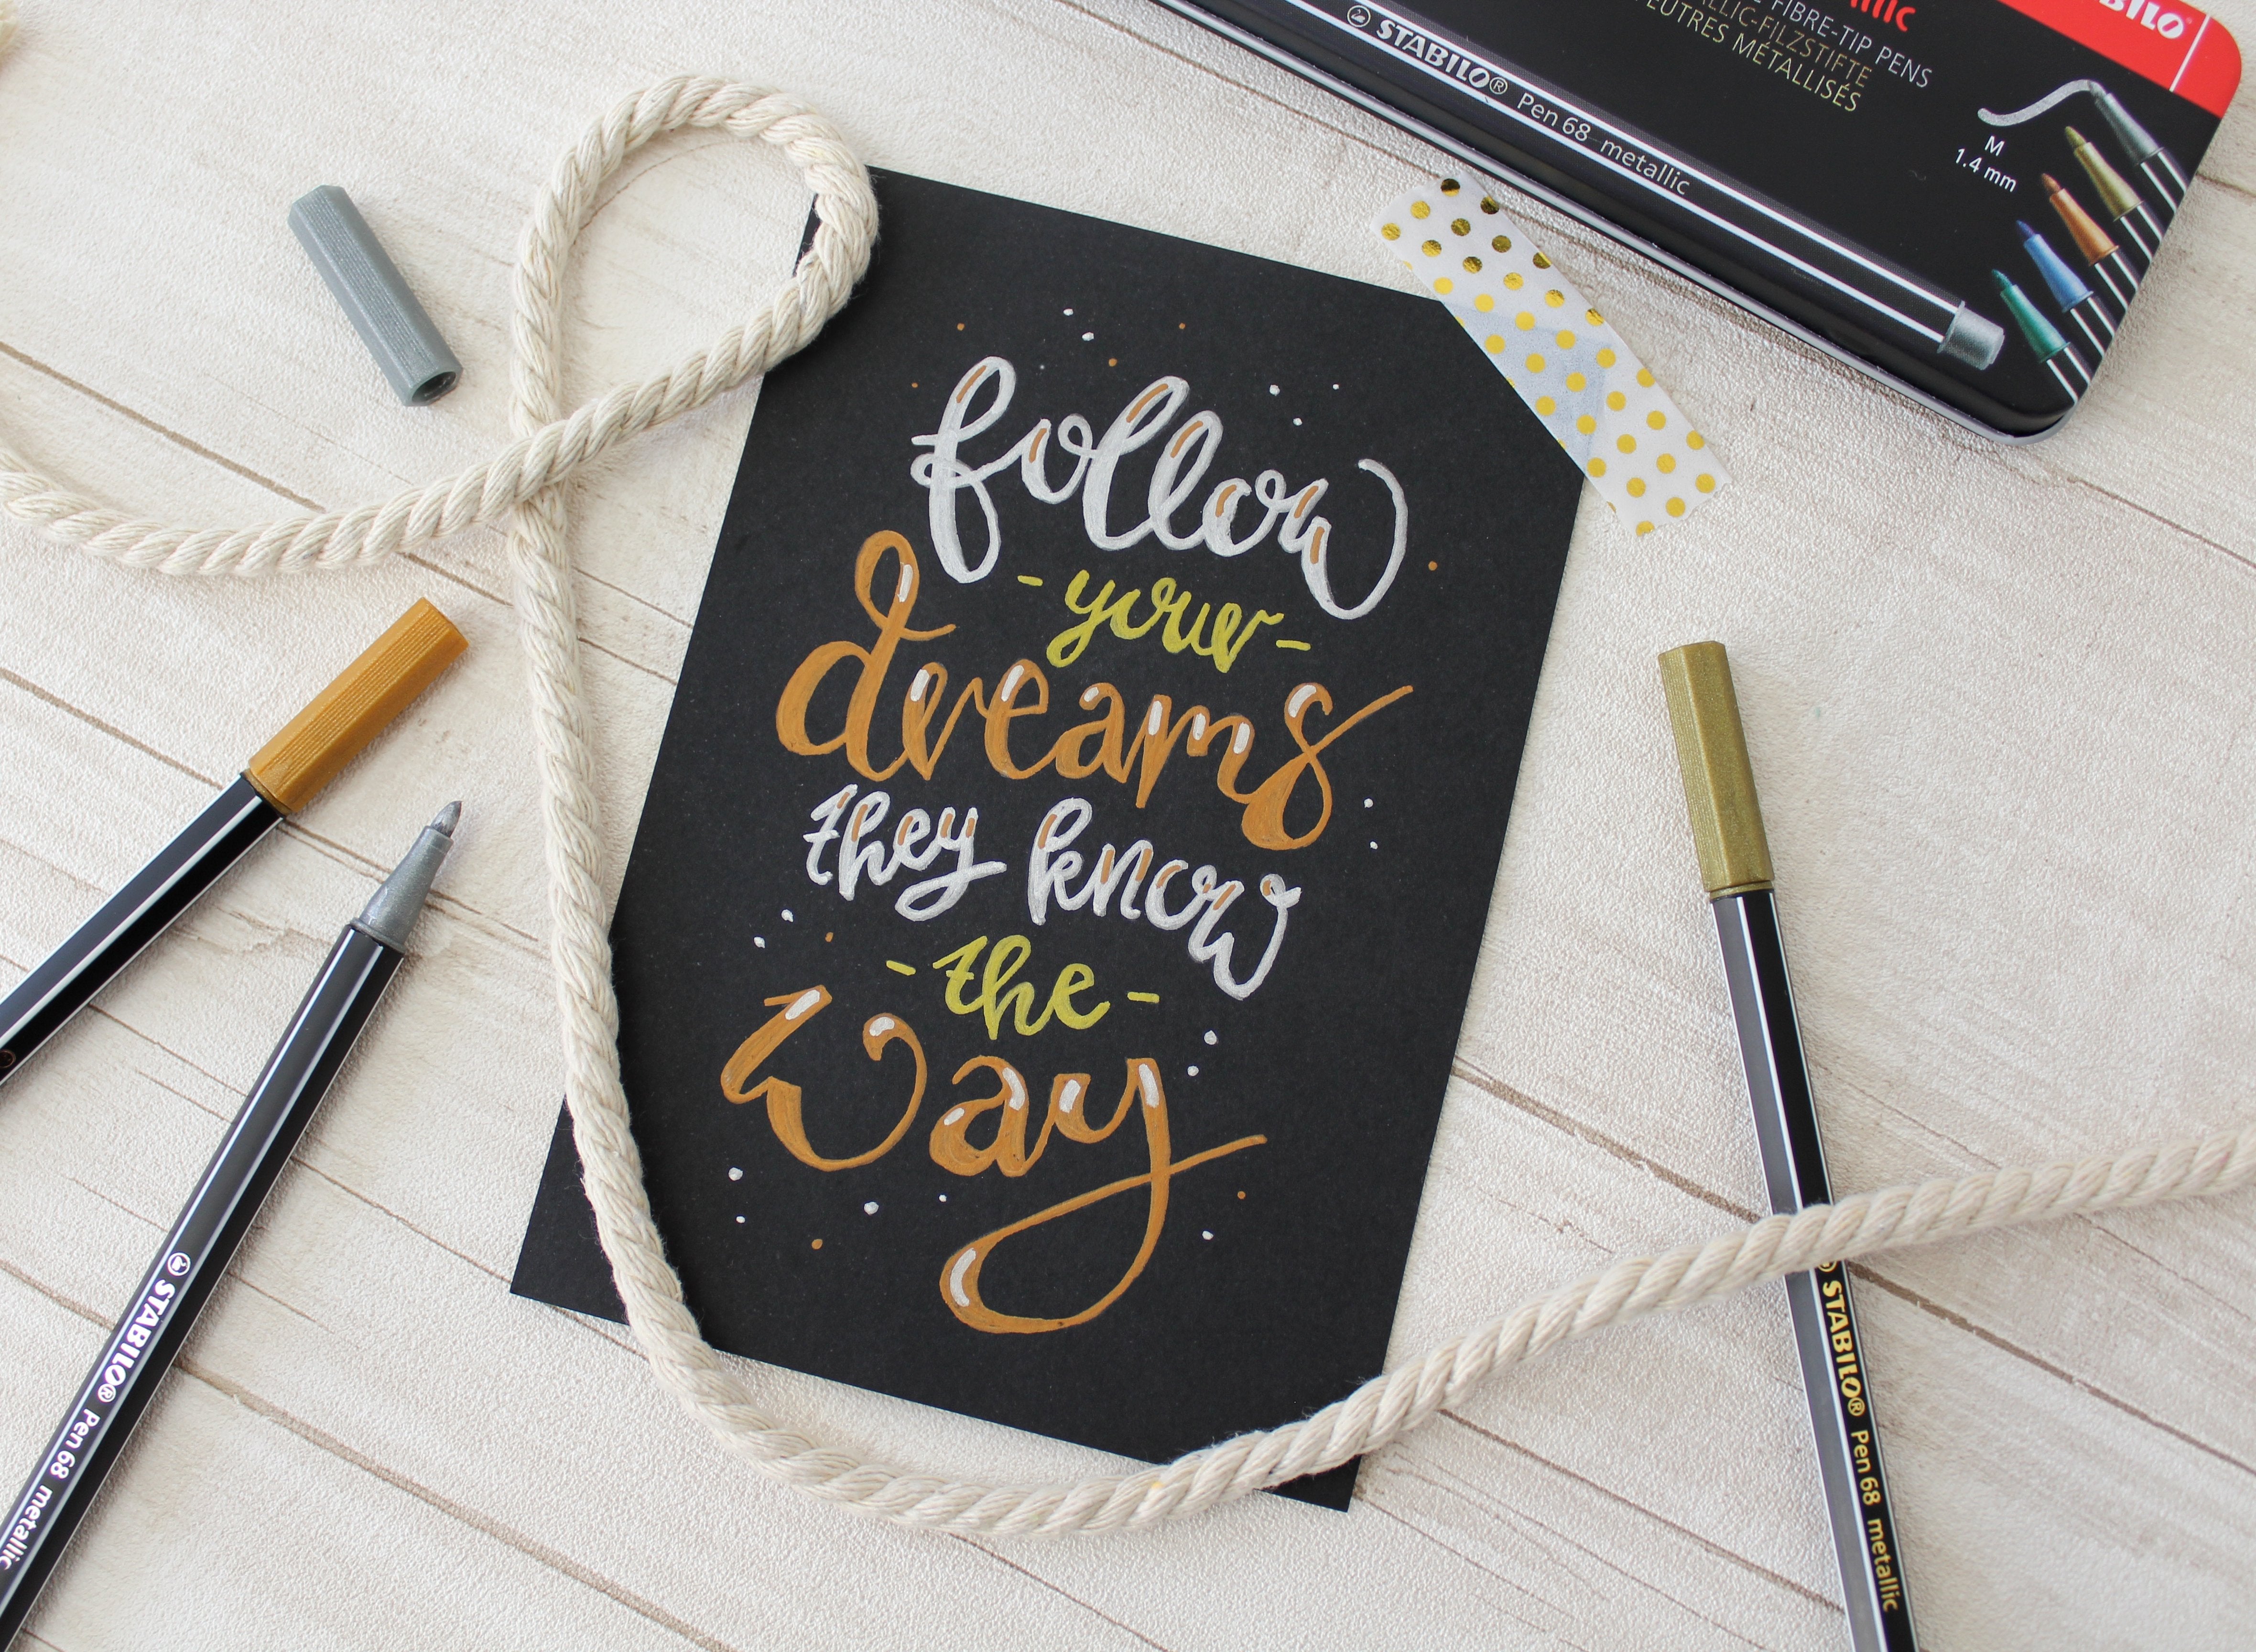 follow
- your -
dreams
they know
- the -
Way
STABILO® Pen 68 metallic
FIBRE-TIP PENS
METALLIC-FILZSTIFTE
FEUTRES MÉTALLISÉS
M
1.4 mm
STABILO® Pen 68 metallic
STABILO® Pen 68 metallic